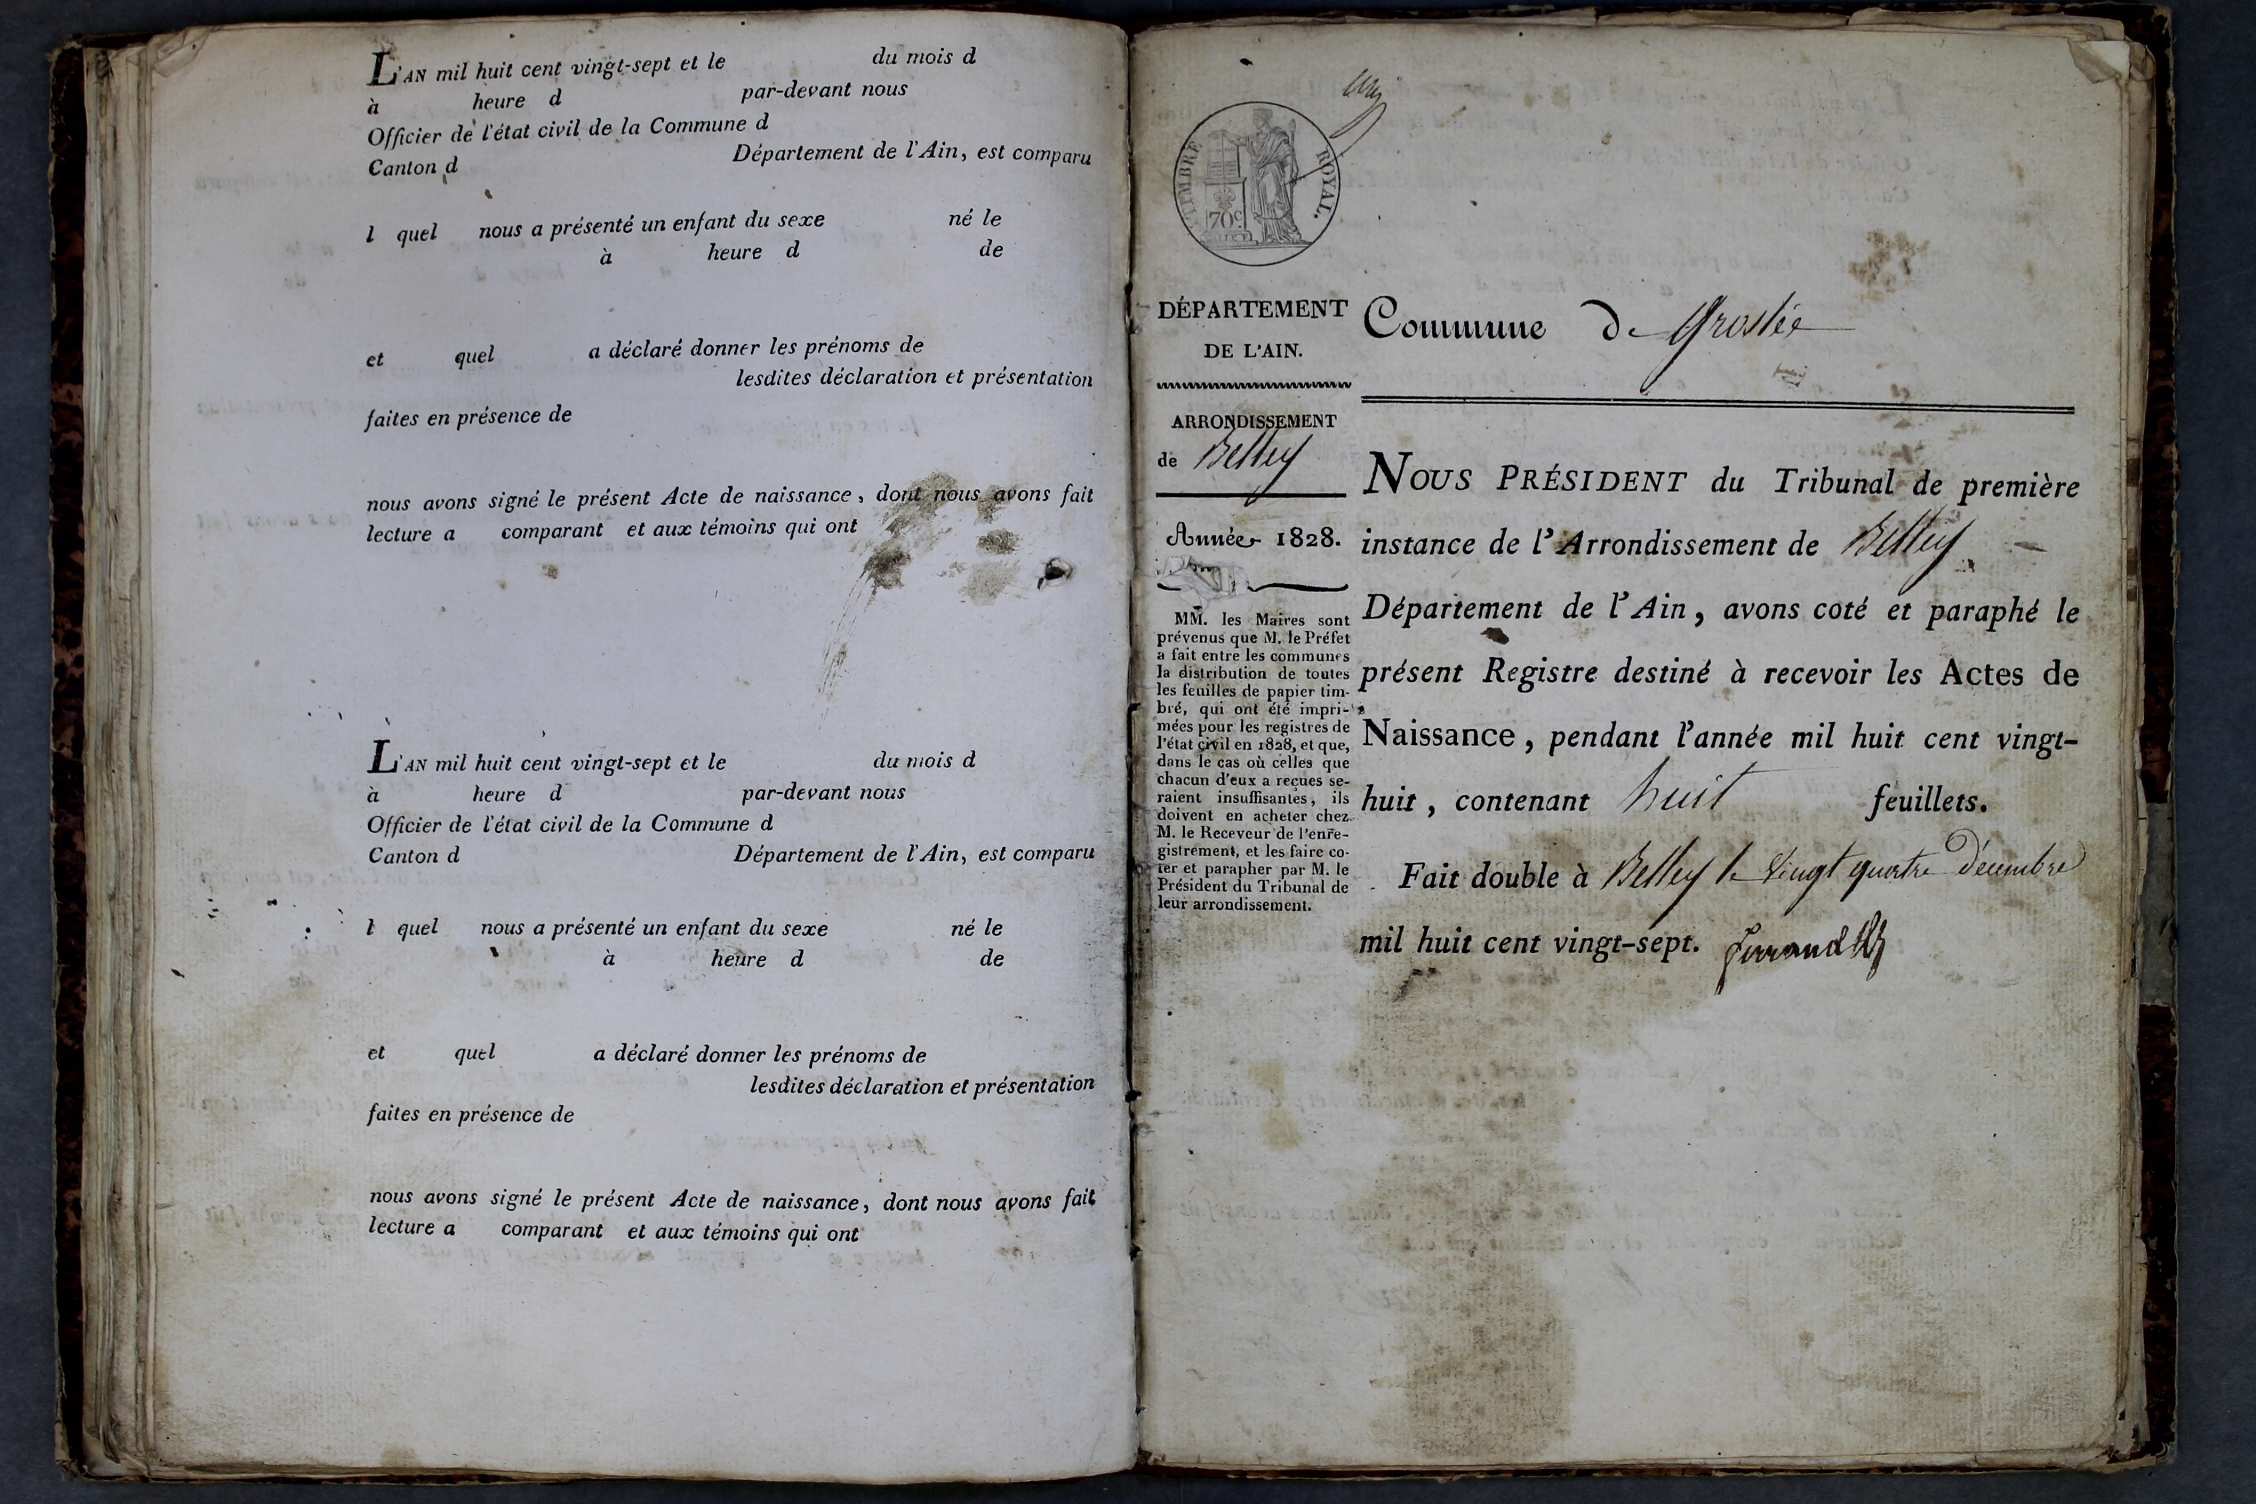 L'AN mil huit cent vingt-sept et le du mois d
à heure d par-devant nous
Officier de l'état civil de la Commune d
Canton d Département de l'Ain, est comparu
l quel nous a présenté un enfant du sexe né le
à heure d de
et quel a déclaré donner les prénoms de
lesdites déclaration et présentation
faites en présence de
nous avons signé le présent Acte de naissance, dont nous avons fait
lecture a comparant et aux témoins qui ont
L'AN mil huit cent vingt-sept et le du mois d
à heure d par-devant nous
Officier de l'état civil de la Commune d
Canton d Département de l'Ain, est comparu
l quel nous a présenté un enfant du sexe né le
à heure d de
et quel a déclaré donner les prénoms de
lesdites déclaration et présentation
faites en présence de
nous avons signé le présent Acte de naissance, dont nous avons fait
lecture a comparant et aux témoins qui ont
TIMBRE ROYAL.
70c
DÉPARTEMENT
DE L'AIN.
ARRONDISSEMENT
de Belley
Année 1828.
MM. les Maires sont
prévenus que M. le Préfet
a fait entre les communes
la distribution de toutes
les feuilles de papier tim-
bré, qui ont été impri-
mées pour les registres de
l'état civil en 1828, et que,
dans le cas où celles que
chacun d'eux a reçues se-
raient insuffisantes, ils
doivent en acheter chez
M. le Receveur de l'enre-
gistrement, et les faire co-
ter et parapher par M. le
Président du Tribunal de
leur arrondissement.
Commune de Groslée
NOUS PRÉSIDENT du Tribunal de première
instance de l'Arrondissement de Belley
Département de l'Ain, avons coté et paraphé le
présent Registre destiné à recevoir les Actes de
Naissance, pendant l'année mil huit cent vingt-
huit, contenant huit feuillets.
Fait double à Belley le vingt quatre Décembre
mil huit cent vingt-sept.